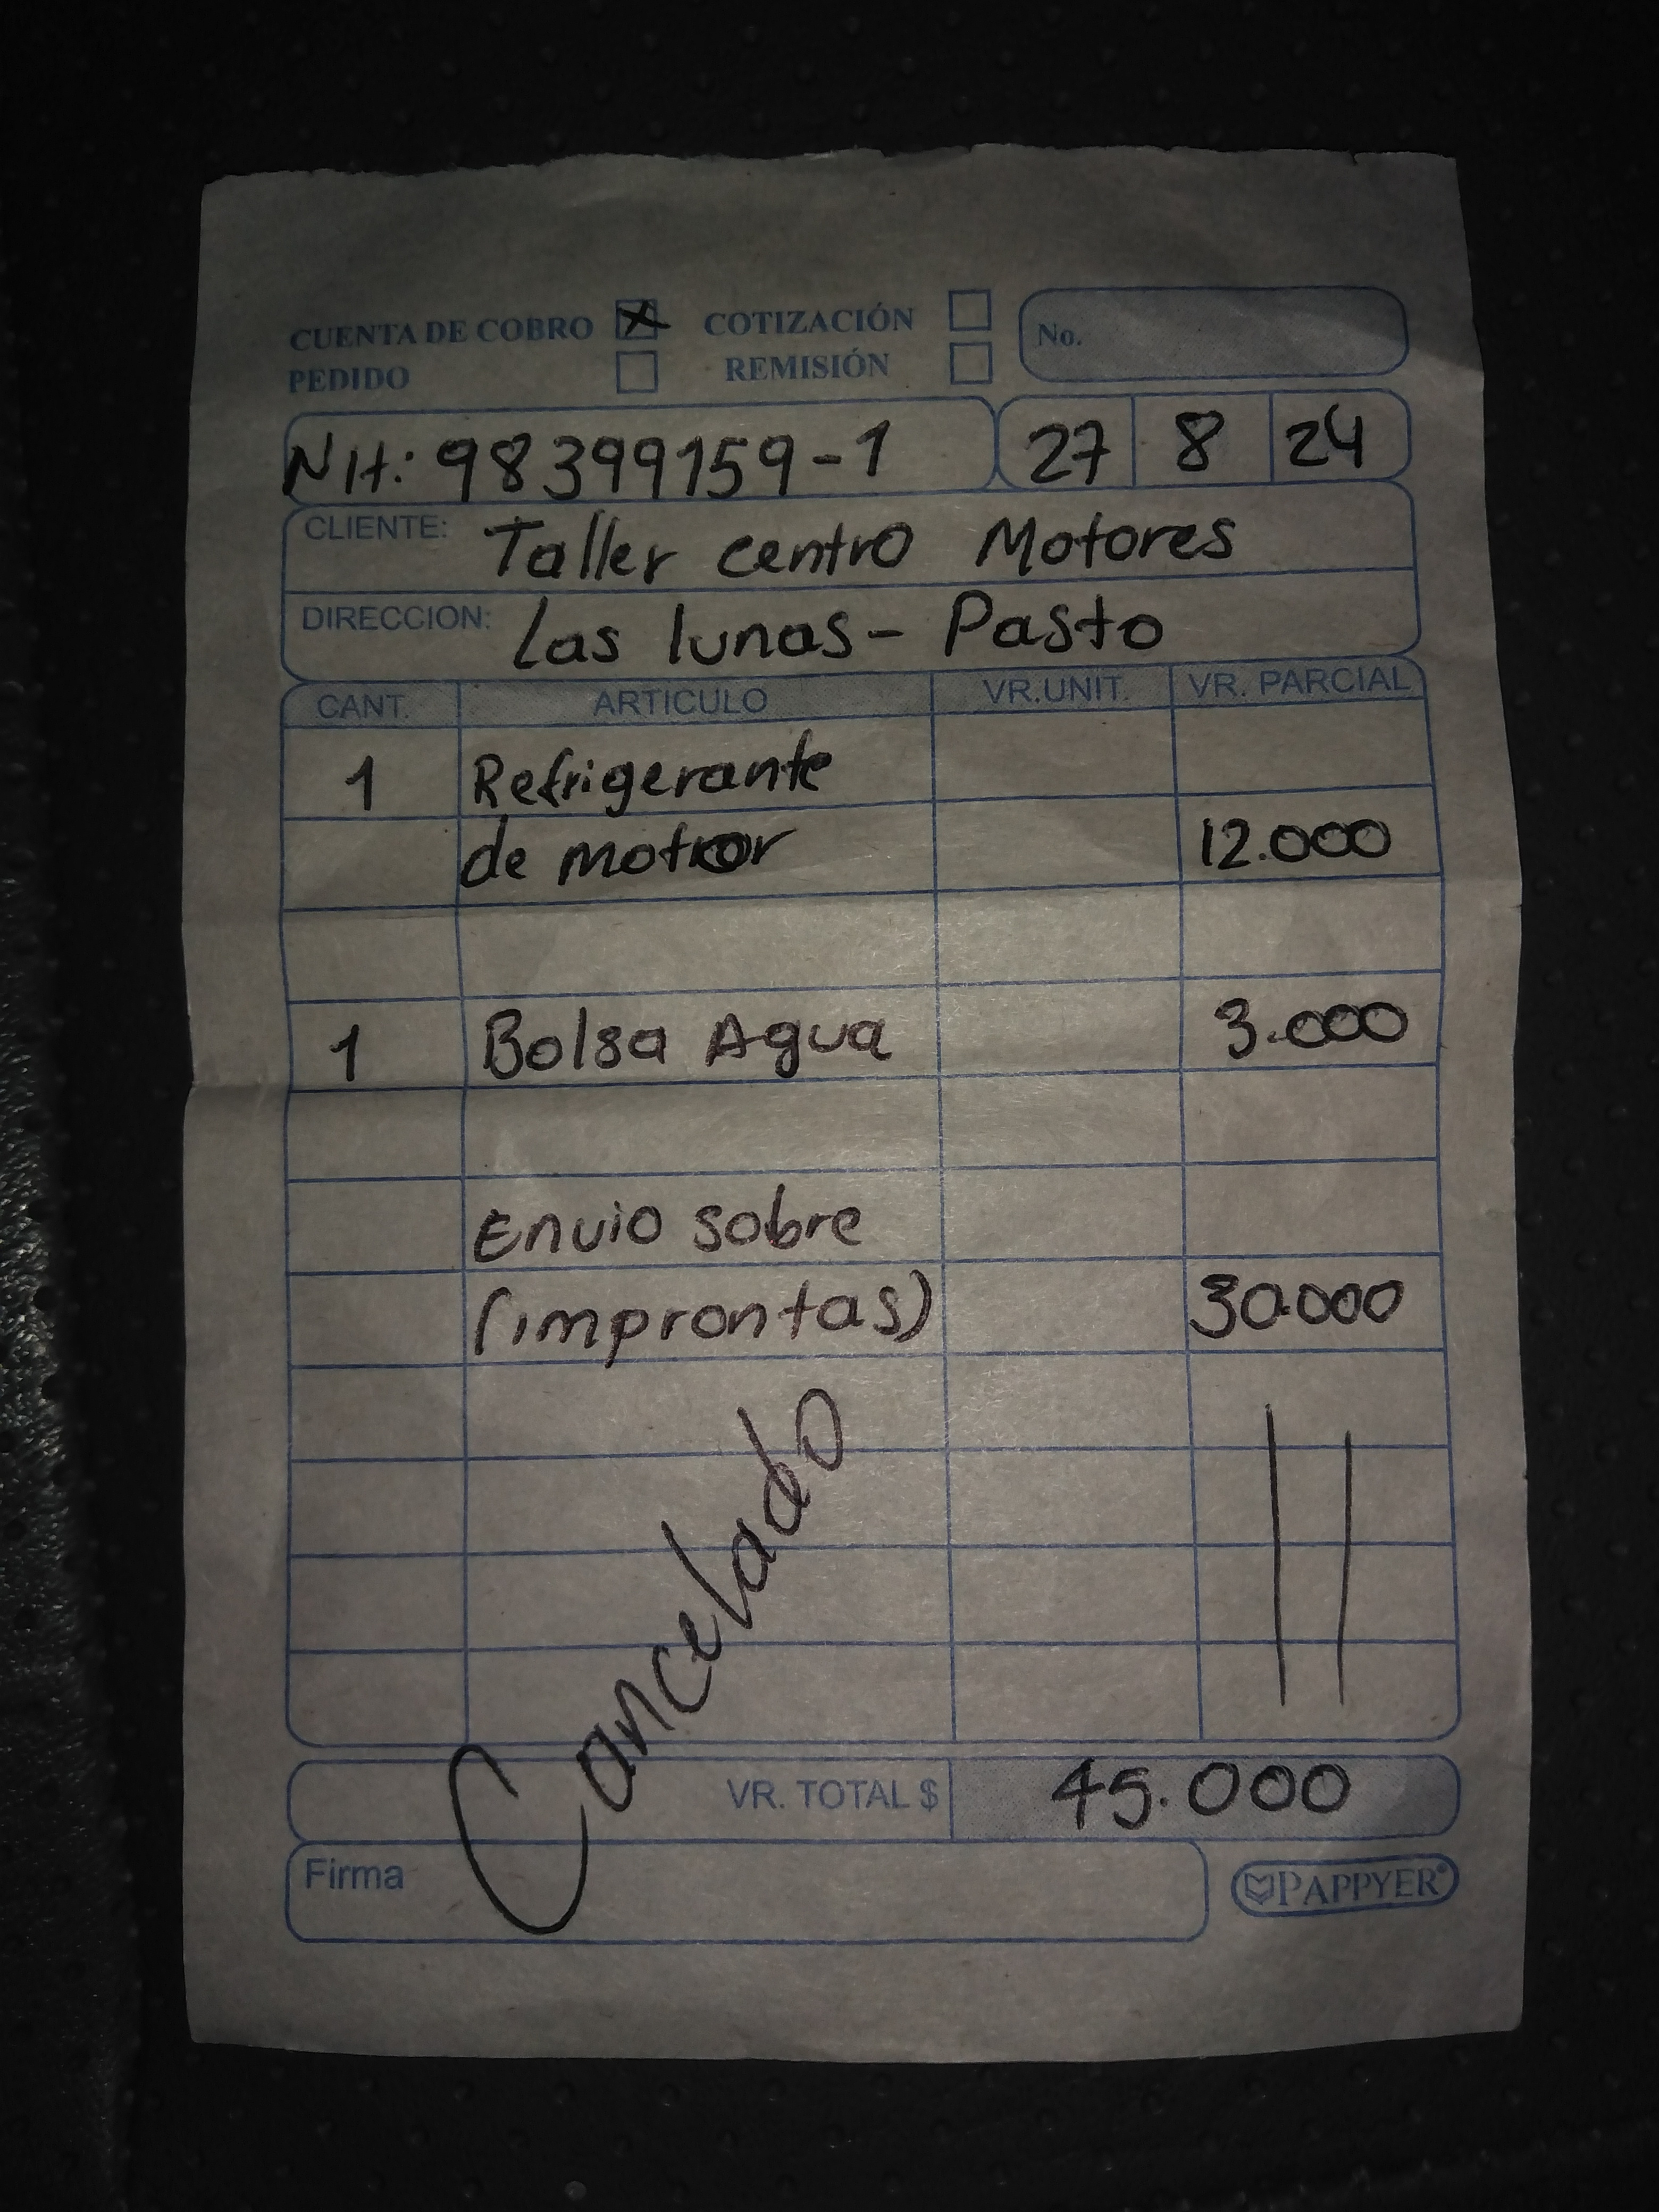 CUENTA DE COBRO COTIZACIÓN No.
PEDIDO REMISIÓN
Nit: 98399159-1 27 8 24
CLIENTE: Taller centro Motores
DIRECCION: Las lunas- Pasto
CANT. ARTICULO VR.UNIT. VR. PARCIAL
1 Refrigerante
de motor 12.000
1 Bolsa Agua 3.000
Envio sobre
(improntas) 30.000
Cancelado
VR. TOTAL $ 45.000
Firma PAPPYER®